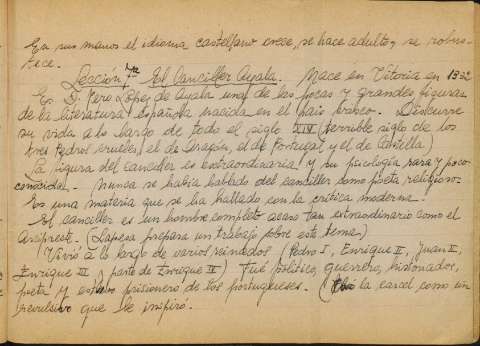 En sus manos el idioma castellano crece, se hace adulto y se robus-
tece.
Lección 7ª El Canciller Ayala. Nace en Vitoria en 1332
Es D. Pero López de Ayala una de las pocas y grandes figuras
de la literatura española nacida en el país vasco. Discurre
su vida a lo largo de todo el siglo XIV (terrible siglo de los
tres Pedros crueles el de Aragón, el de Portugal y el de Castilla)
La figura del canciller es extraordinaria y su psicología rara y poco
conocida. Nunca se había hablado del canciller como poeta religioso.
Es una materia que se ha hallado con la crítica moderna.
El canciller es un hombre completo acaso tan extraordinario como el
Arcipreste. (Lapesa prepara un trabajo sobre este tema)
Vivió a lo largo de varios reinados (Pedro I, Enrique II, Juan I,
Enrique III y parte de Enrique II) Fué político, guerrero, historiador,
poeta y estuvo prisionero de los portugueses. ( la carcel como un
revulsivo que le inspiró.